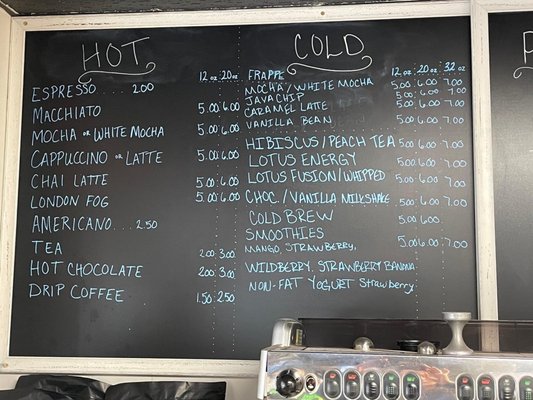 HOT
12 oz 20 oz
ESPRESSO .... 2.00
MACCHIATO 5.00 6.00
MOCHA OR WHITE MOCHA 5.00 6.00
CAPPUCCINO OR LATTE 5.00 6.00
CHAI LATTE 5.00 6.00
LONDON FOG 5.00 6.00
AMERICANO... 2.50
TEA 2.00 3.00
HOT CHOCOLATE 2.00 3.00
DRIP COFFEE 1.50 2.50
COLD
FRAPPE 12 oz 20 oz 32 oz
MOCHA/WHITE MOCHA 5.00 6.00 7.00
JAVA CHIP 5.00 6.00 7.00
CARAMEL LATTE 5.00 6.00 7.00
VANILLA BEAN 5.00 6.00 7.00
HIBISCUS/PEACH TEA 5.00 6.00 7.00
LOTUS ENERGY 5.00 6.00 7.00
LOTUS FUSION/WHIPPED 5.00 6.00 7.00
CHOC./VANILLA MILKSHAKE 5.00 6.00 7.00
COLD BREW 5.00 6.00
SMOOTHIES
MANGO, STRAWBERRY, 5.00 6.00 7.00
WILDBERRY, STRAWBERRY BANANA
NON-FAT YOGURT Strawberry